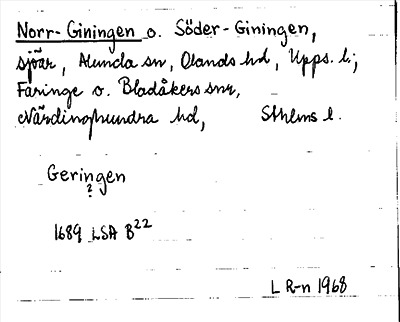 Norr-Giningen o. Söder-Giningen,
sjöar, Alunda sn, Olands hd, Upps. l.;
Faringe o. Bladåkers snr,
Närdinghundra hd, Sthlms l.
Geringen
?
1689 LSA B22
L R-n 1968